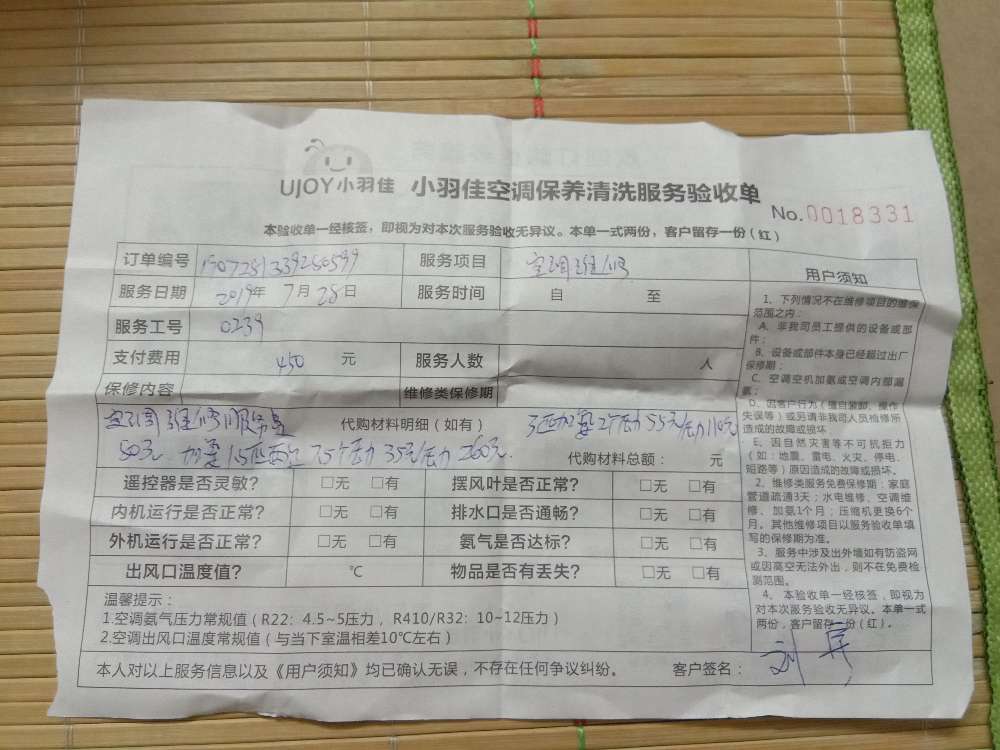 UJOY小羽佳 小羽佳空调保养清洗服务验收单
No.0018331
本验收单一经核签，即视为对本次服务验收无异议。本单一式两份，客户留存一份（红）
订单编号 服务项目 空调维修
服务日期 2019年 7月28日 服务时间 自 至
服务工号 0239
支付费用 450 元 服务人数 人
保修内容 维修类保修期
空调维修服务 代购材料明细（如有） 3匹加氨2个压力55元/压力110元
50元. 加氨1.5匹 7.5个压力35元/压力260元.
代购材料总额： 元
遥控器是否灵敏？ □无 □有 摆风叶是否正常？ □无 □有
内机运行是否正常？ □无 □有 排水口是否通畅？ □无 □有
外机运行是否正常？ □无 □有 氨气是否达标？ □无 □有
出风口温度值？ ℃ 物品是否有丢失？ □无 □有
温馨提示：
1.空调氨气压力常规值（R22：4.5~5压力，R410/R32：10~12压力）
2.空调出风口温度常规值（与当下室温相差10℃左右）
本人对以上服务信息以及《用户须知》均已确认无误，不存在任何争议纠纷。 客户签名：
用户须知
1、下列情况不在维修项目的维保
范围之内：
A、非我司员工提供的设备或部
件；
B、设备或部件本身已经超过出厂
保修期；
C、空调空机加氨或空调内部漏
氨；
D、因客户行为（擅自装卸、操作
失误等）或另请非我司人员检修所
造成的故障或损坏
E、因自然灾害等不可抗拒力
（如：地震、雷电、火灾、停电、
短路等）原因造成的故障或损坏。
2、维修类服务免费保修期：家庭
管道疏通3天；水电维修、空调维
修、加氨1个月；压缩机更换6个
月。其他维修项目以服务验收单填
写的保修期为准。
3、服务中涉及出外墙如有防盗网
或因高空无法外出，则不在免费检
测范围。
4、本验收单一经核签，即视为
对本次服务验收无异议。本单一式
两份，客户留存一份（红）。